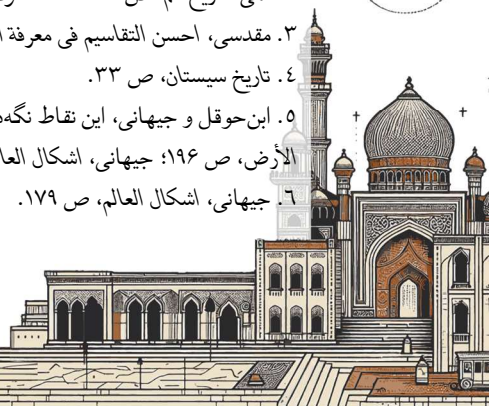 ٣. مقدسی، احسن التقاسیم فی معرفة
٤. تاریخ سیستان، ص ٣٣.
٥. ابن‌حوقل و جیهانی، این نقاط
الأرض، ص ١٩۶؛ جیهانی، اشکال
٦. جیهانی، اشکال العالم، ص ١٧٩.